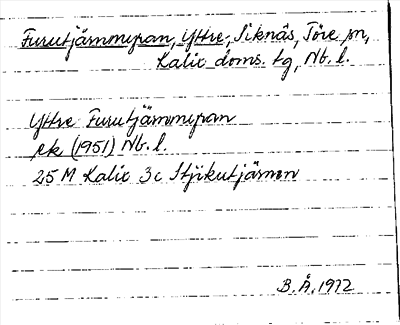 Furutjärnmyran, Yttre, Siknäs, Töre sn,
Kalix doms. tg, Nb. l.
Yttre Furutjärnmyran
ek (1951) Nb. l.
25 M Kalix 3c Stjikutjärnen
B.Å. 1972